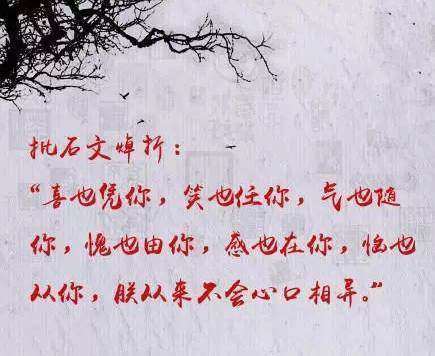 批石文焯折：
“喜也凭你，笑也任你，气也随
你，愧也由你，感也在你，恼也
从你，朕从来不会心口相异。”